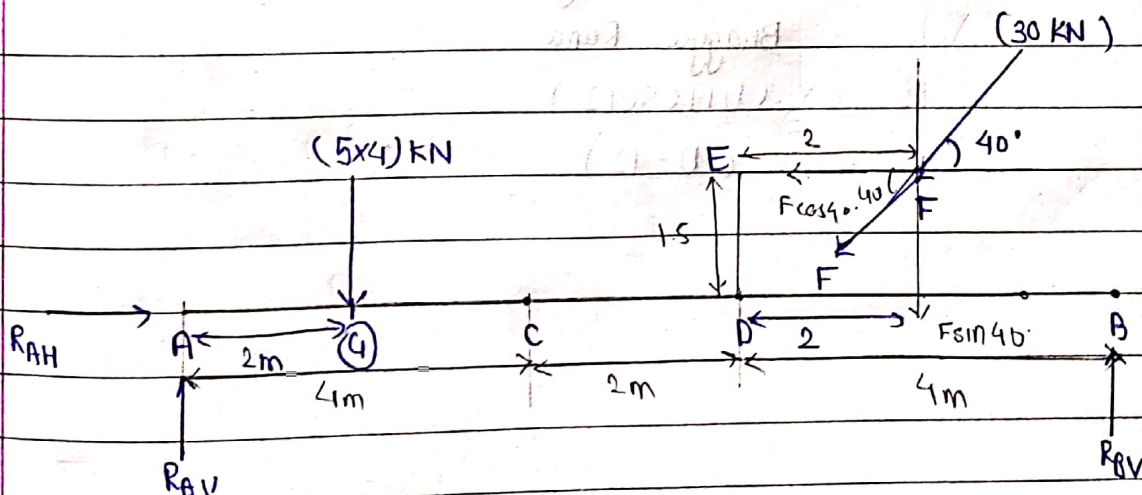 (30 KN)
(5x4) KN
E 2 40°
Fcos40. 40
F
1.5
F
RAH A 2m 4 C D 2 Fsin40. B
4m 2m 4m
RAV RBV